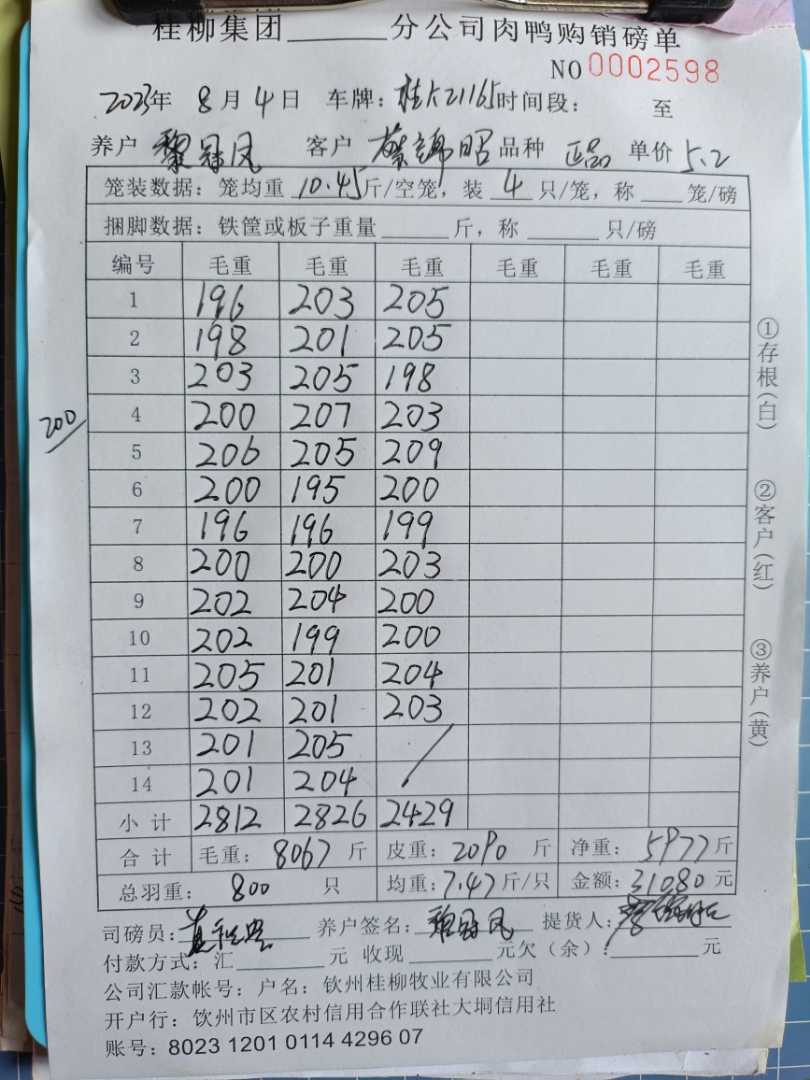 桂柳集团______分公司肉鸭购销磅单
NO 0002598
2023年 8月4日 车牌：桂A21165 时间段： 至
养户 黎冠凤 客户 蔡锦昭 品种 正品 单价 5.2
笼装数据：笼均重 10.45斤/空笼，装 4 只/笼，称 ___ 笼/磅
捆脚数据：铁筐或板子重量 _____ 斤，称 _____ 只/磅
编号 毛重 毛重 毛重 毛重 毛重 毛重
1 196 203 205
2 198 201 205
3 203 205 198
4 200 207 203
200
5 206 205 209
6 200 195 200
7 196 196 199
8 200 200 203
9 202 204 200
10 202 199 200
11 205 201 204
12 202 201 203
13 201 205
14 201 204
小计 2812 2826 2429
合计 毛重：8067 斤 皮重：2090 斤 净重：5977斤
总羽重：800 只 均重：7.47斤/只 金额：31080元
司磅员： 养户签名：黎冠凤 提货人：
付款方式：汇______元 收现______元欠（余）：______元
公司汇款帐号：户名：钦州桂柳牧业有限公司
开户行：钦州市区农村信用合作联社大垌信用社
账号：8023 1201 0114 4296 07
①存根（白）
②客户（红）
③养户（黄）